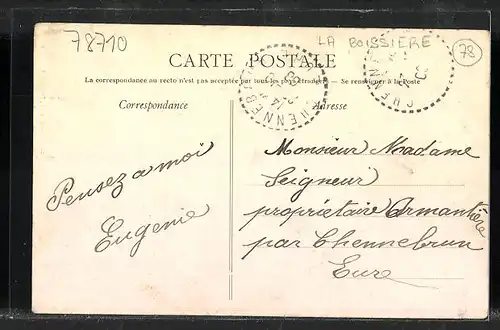 78710
LA BOISSIERE
78
CARTE POSTALE
La correspondance au recto n'est pas acceptée par tous les pays étrangers. — Se renseigner à la Poste
Correspondance
Adresse
CHENNEB
CHENN
Monsieur Madame
Seigneur
propriétaire Armantière
par Chennebrun
Eure
Pensez a moi
Eugenie